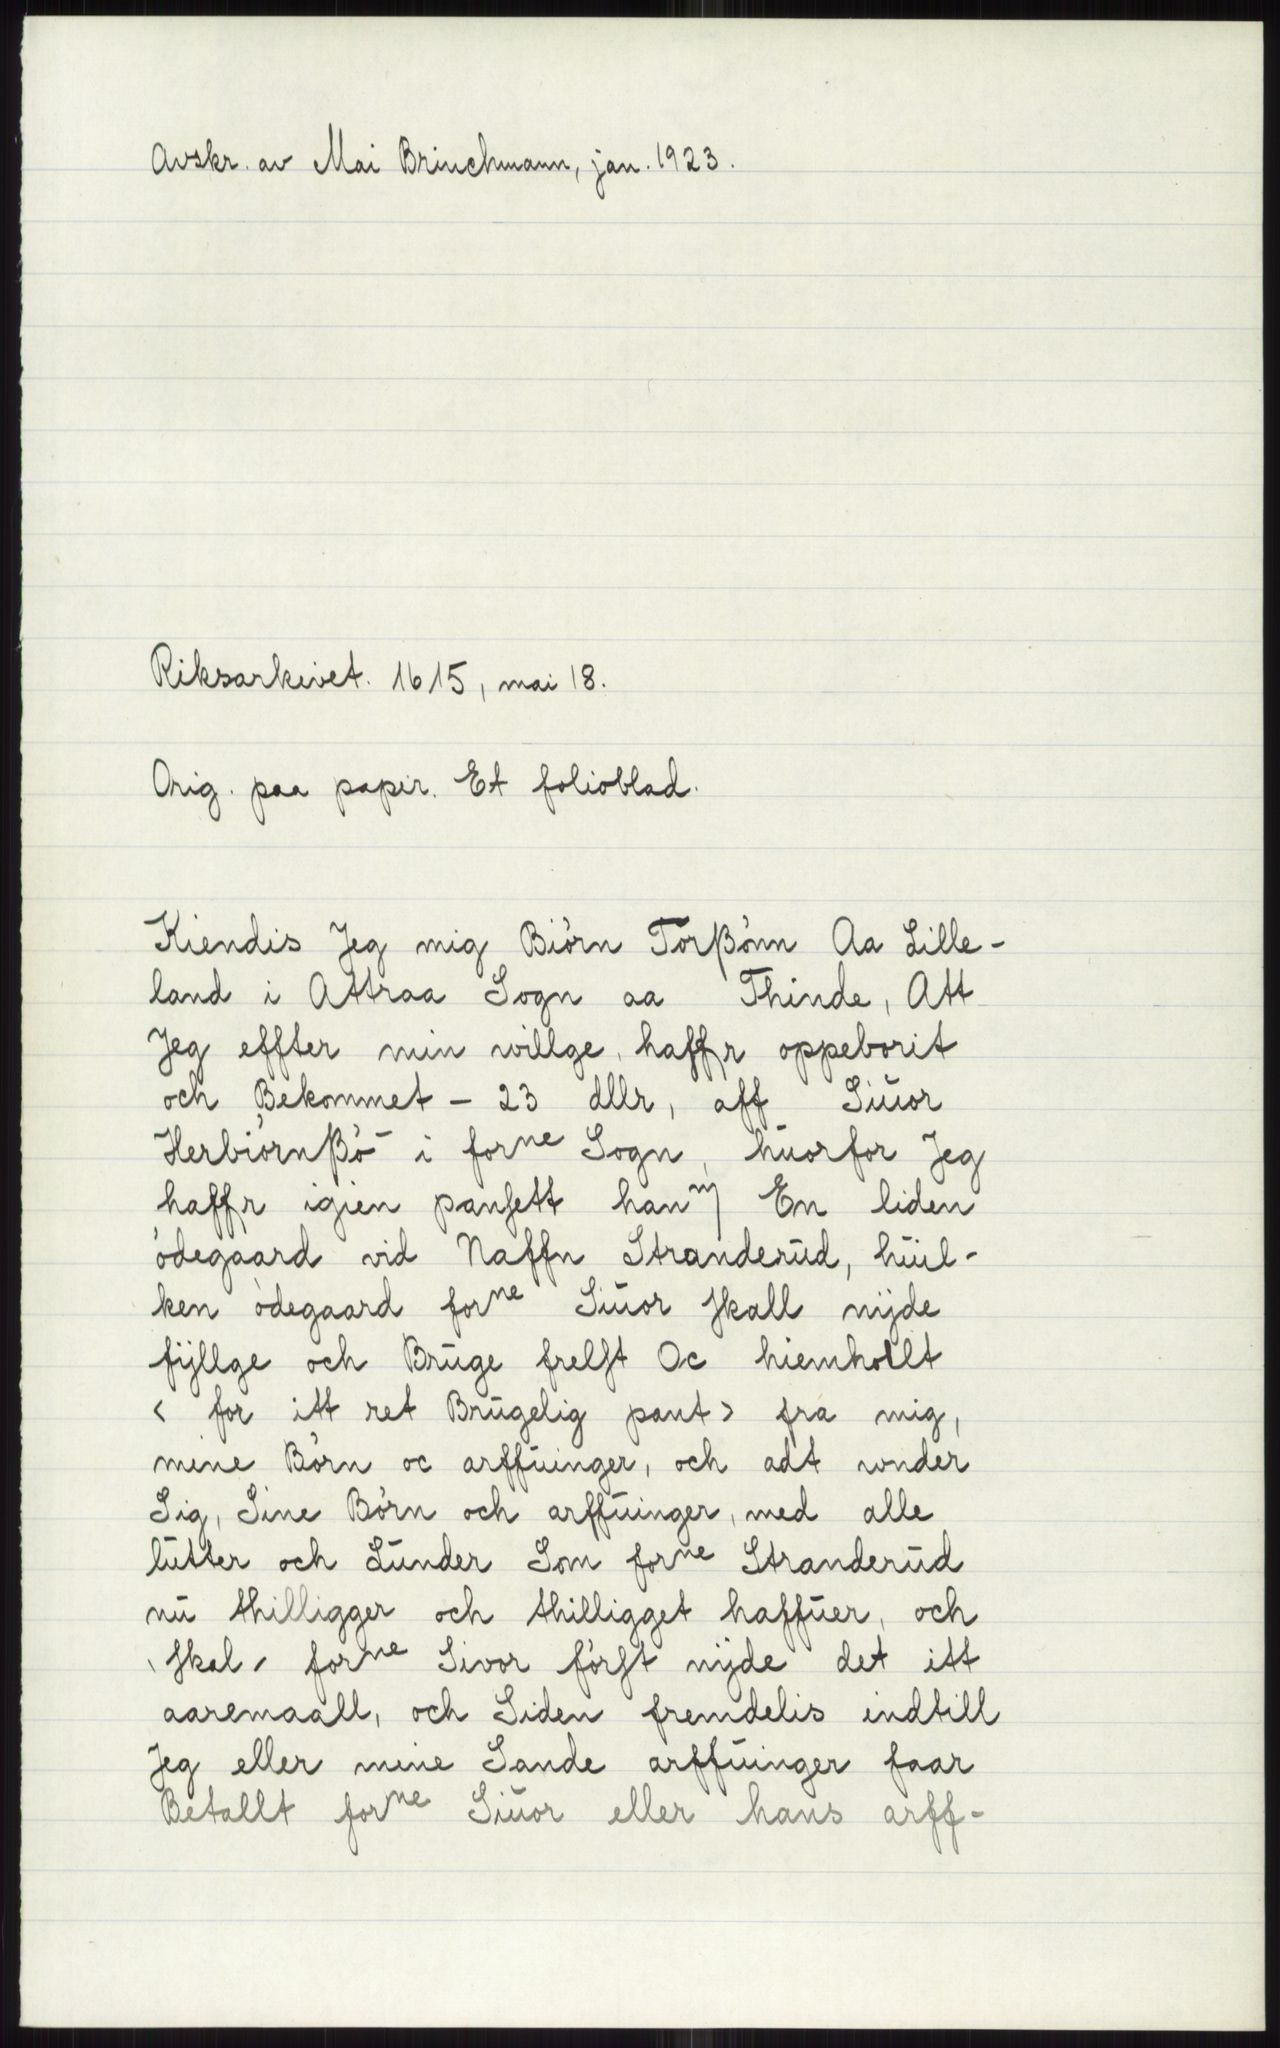 Avskr. av Mai Brinchmann, jan. 1923.
Riksarkivet. 1615, mai 18.
Orig. paa papir. Et folioblad.
Kiendis Jeg mig Biörn Torßönn Aa Lille-
land i Attraa Sogn aa Thinde, Att
Jeg effter min willge, haffr oppeborit
och Bekommet - 23 dllr, aff Siŭor
Herbiörnßȫ i forne Sogn, hŭorfor Jeg
haffr igien panſett hanm En liden
ödegaard vid Naffn Stranderŭd, hŭil-
ken ödegaard forne Siŭor ſkall nÿde
fÿllge och Brŭge frelſt Oc hiemhollt
< for itt ret Brŭgelig pant > fra mig,
mine Börn oc arffŭinger, och adt wnder
Sig, Sine Börn och arffŭinger, med alle
lŭtter och Lŭnder Som forne Stranderŭd
nŭ thilligger och thilligget haffŭer, och
ſkal, forne Sivor förſt nÿde det itt
aaremaall, och Siden fremdelis indtill
Jeg eller mine Sande arffŭinger faar
Betallt forne Siŭor eller hans arff-